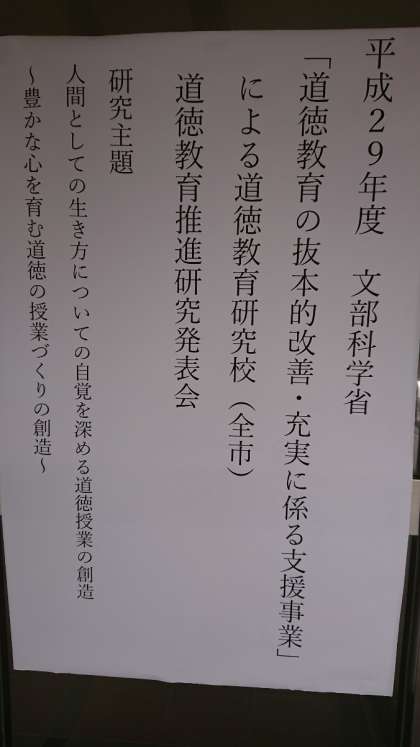 平成２９年度　文部科学省
「道徳教育の抜本的改善・充実に係る支援事業」
による道徳教育研究校（全市）
道徳教育推進研究発表会
研究主題
人間としての生き方についての自覚を深める道徳授業の創造
～豊かな心を育む道徳の授業づくりの創造～